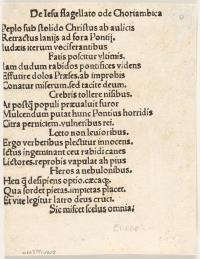 De Iesu flagellato ode Choriambica
Peplo sub stolido Christus ab aulicis
Retractus lanijs ad fora Pontij,
Iudæis iterum vociferantibus
Fatis poscitur vltimis.
Iam dudum rabidos pontifices videns
Effutire dolos Præses, ab improbis
Conatur miserum, sed tacite deum,
Crebris tollere nisibus.
At postq̃ populi præualuit furor
Mulcendum putat hunc Pontius horridis
Citra perniciem, vulneribus rei,
Lœto non leuioribus.
Ergo verberibus plectitur innocens.
Ictus ingeminant ceu rabidi canes
Lictores, reprobis vapulat ah pius
Heros a nebulonibus.
Heu q̃ desipiens optio, cæcaq;,
Qua sordet pietas, impietas placet.
Et vite legitur latro deus crucē.
Sic miscet scelus omnia;